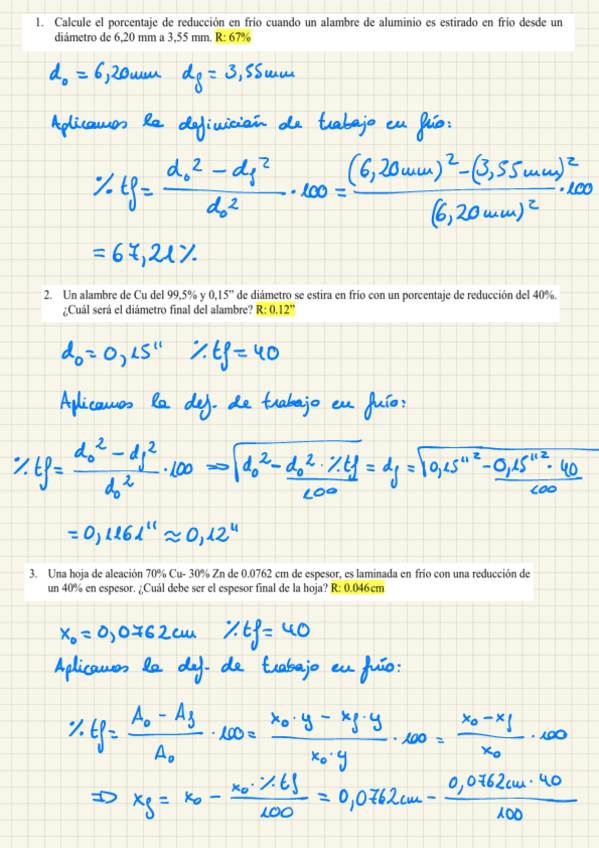 1. Calcule el porcentaje de reducción en frío cuando un alambre de aluminio es estirado en frío desde un
diámetro de 6,20 mm a 3,55 mm. R: 67%
d₀ = 6,20mm d_f = 3,55mm
Aplicamos la definición de trabajo en frío:
% tf = (d₀² - d_f²)/d₀² · 100 = ((6,20mm)² - (3,55mm)²)/(6,20mm)² · 100
= 67,21%
2. Un alambre de Cu del 99,5% y 0,15” de diámetro se estira en frío con un porcentaje de reducción del 40%.
¿Cuál será el diámetro final del alambre? R: 0.12”
d₀ = 0,15" % tf = 40
Aplicamos la def. de trabajo en frío:
% tf = (d₀² - d_f²)/d₀² · 100 => √(d₀² - d₀² · % tf/100) = d_f = √(0,15"² - 0,15"² · 40/100)
= 0,1161" ≈ 0,12"
3. Una hoja de aleación 70% Cu- 30% Zn de 0.0762 cm de espesor, es laminada en frío con una reducción de
un 40% en espesor. ¿Cuál debe ser el espesor final de la hoja? R: 0.046cm
x₀ = 0,0762cm % tf = 40
Aplicamos la def. de trabajo en frío:
% tf = (A₀ - A_f)/A₀ · 100 = (x₀·y - x_f·y)/(x₀·y) · 100 = (x₀ - x_f)/x₀ · 100
=> x_f = x₀ - (x₀ · % tf)/100 = 0,0762cm - (0,0762cm · 40)/100